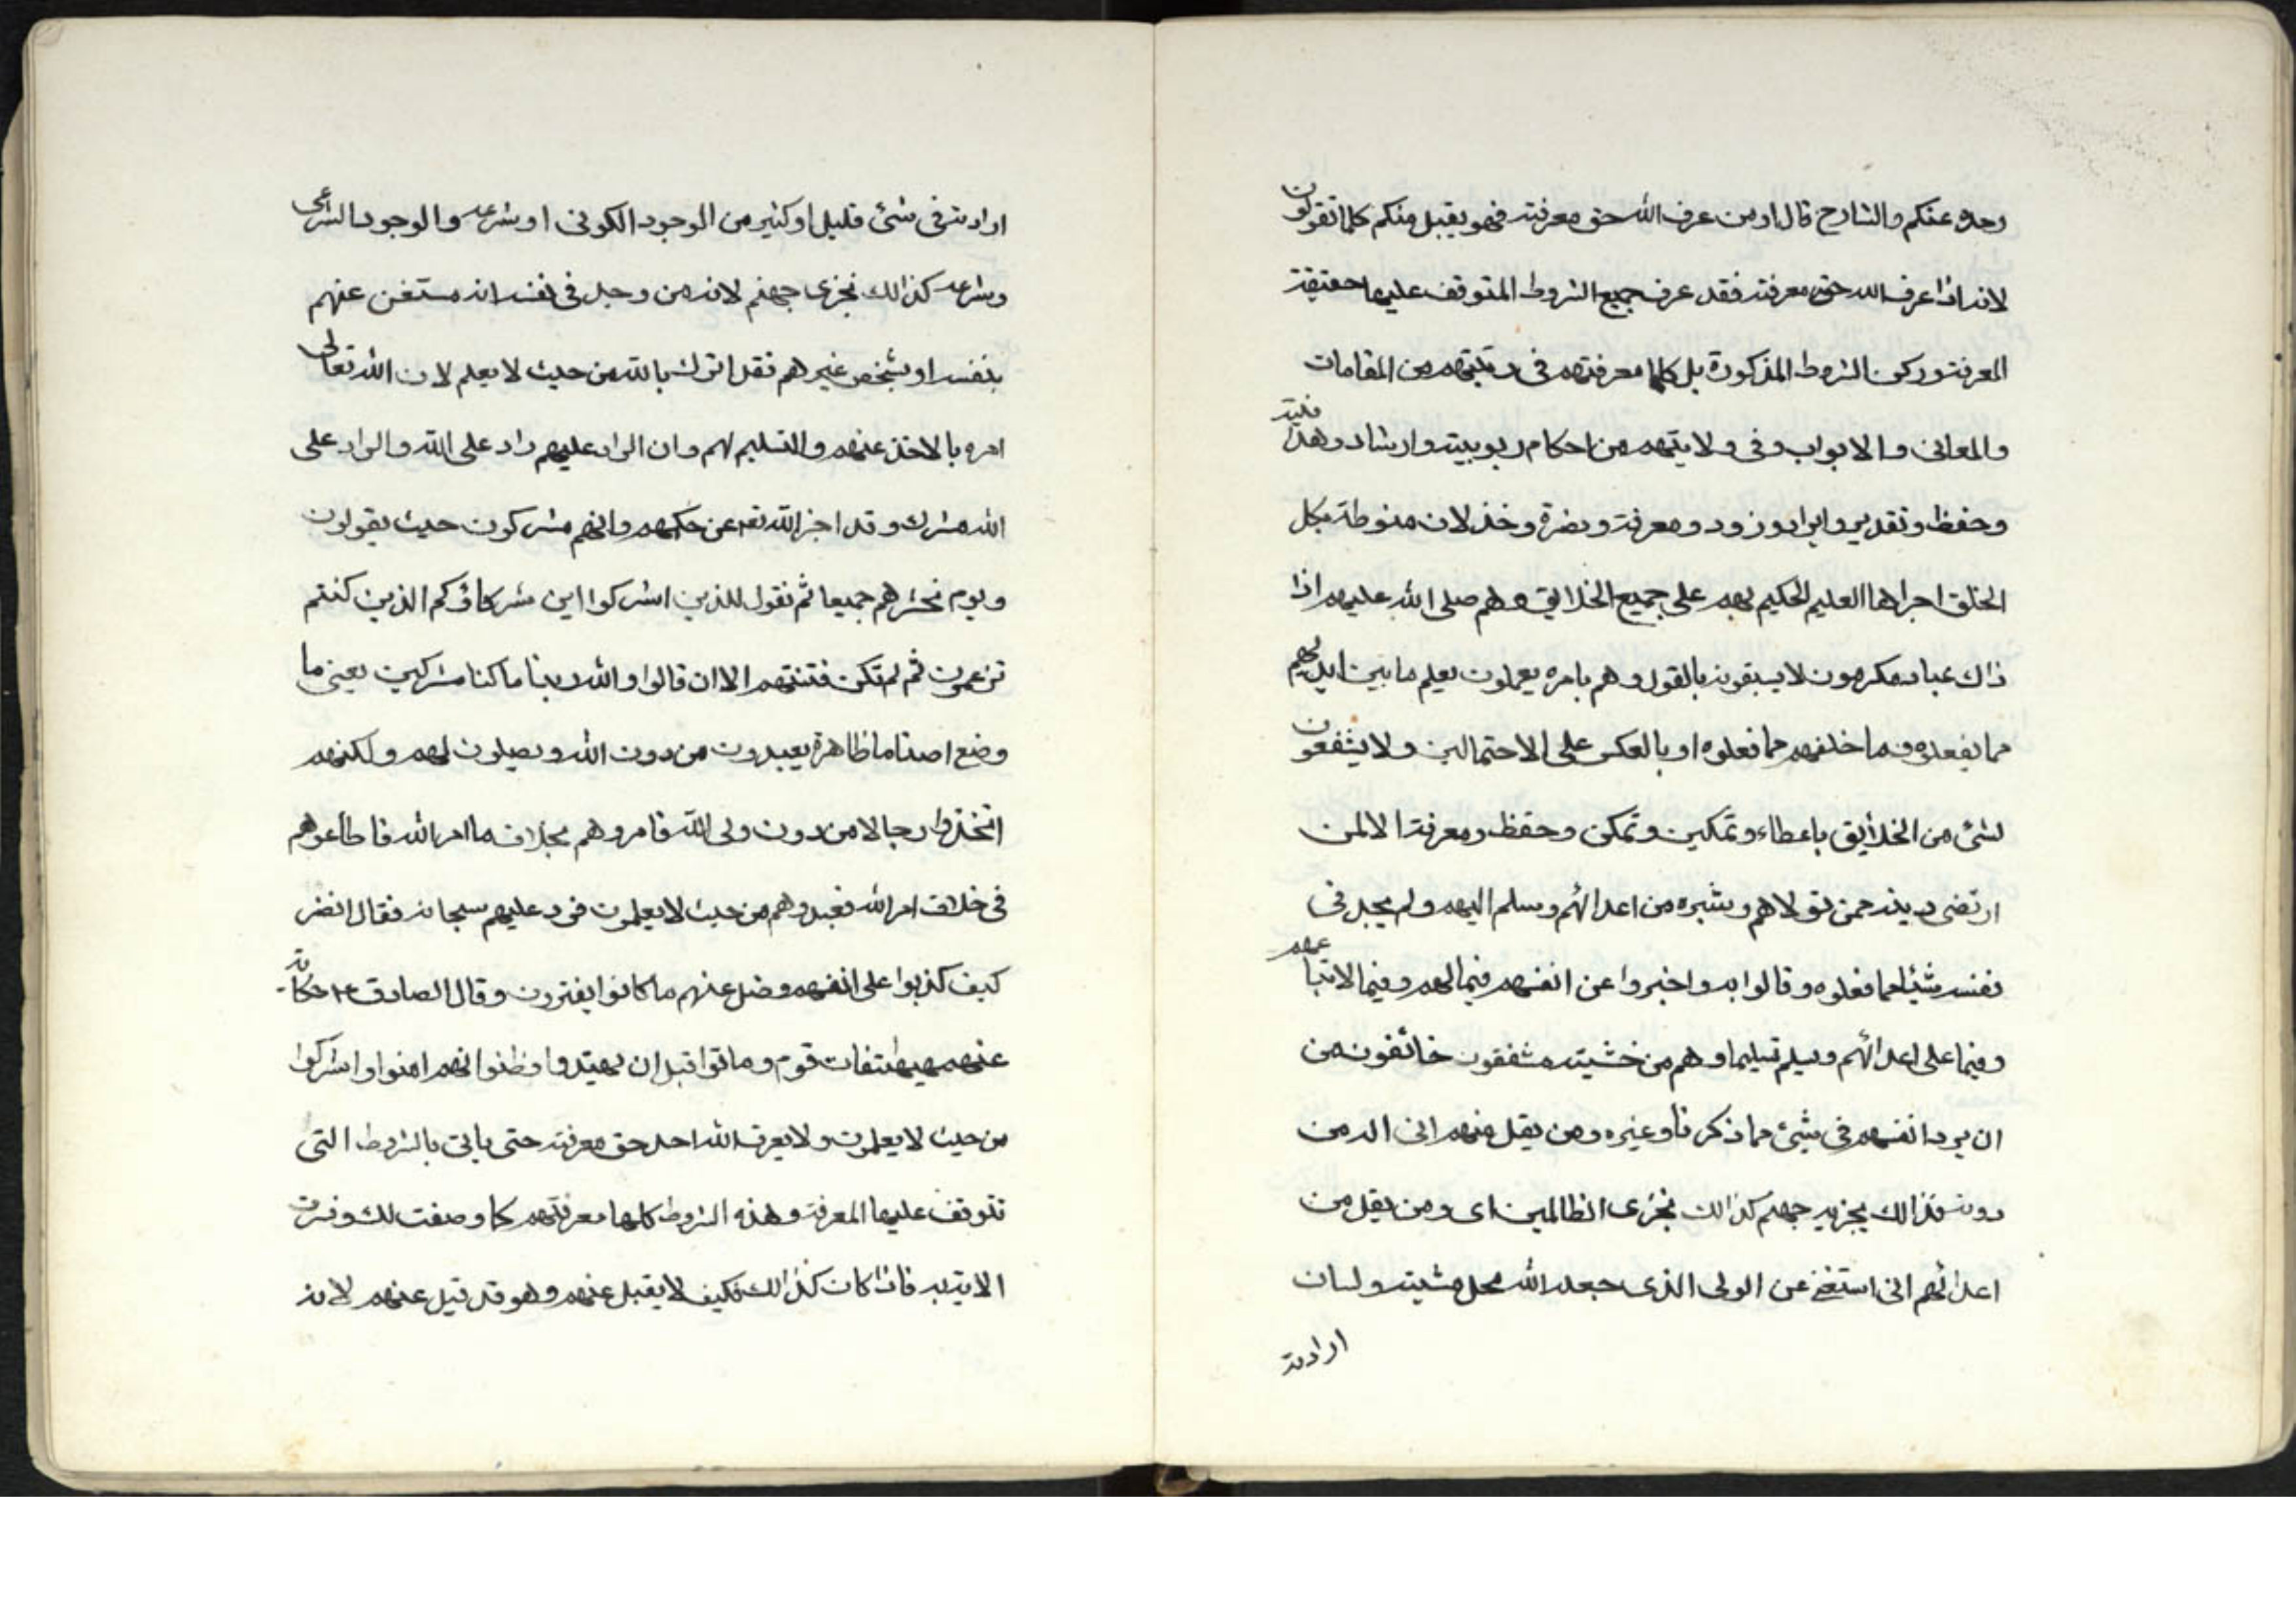 وحده عنكم والشارح قال اد من عرف الله حق معرفته فهو يقبل منكم كلما تقولون
لانه اذا عرف الله حق معرفته فقد عرف جميع الشروط المتوقف عليها حقيقة
المعرفة وركن الشروط المذكورة بل كلها معرفتهم في رتبتهم من المقامات
والمعاني والابواب وفي ولايتهم من احكام ربوبيته وارشاد وهداية
وحفظ وتقدير وايراد وزود ومعرفة ونصرة وخذلان منوطة بكل
الخلق اجراها العليم الحكيم بهم على جميع الخلايق وهم صلى الله عليهم اذا
ذاك عباد مكرمون لا يسبقونه بالقول وهم بامره يعملون يعلم ما بين ايديهم
مما يفعلوه وما خلفهم مما فعلوه او بالعكس على الاحتمالين ولا يشفعون
لشئ من الخلايق باعطاء وتمكين وتمكن وحفظ ومعرفة الا لمن
ارتضى دينه ممن تولاهم وتبرء من اعدائهم وسلم اليهم ولم يجد في
نفسه شيئا مما فعلوه وقالوا به واخبروا عن انفسهم فيما لهم وفيما لاتباعهم
وفيما على اعدائهم ويسلم تسليما وهم من خشيته مشفقون خائفون من
ان يرد انفسهم في شئ مما ذكرنا وغيره ومن يقل منهم اني اله من
دونه فذالك نجزيه جهنم كذالك نجزى الظالمين اى ومن يقل من
اعدائهم اني استغنى عن الولى الذى جعله الله محل مشيته ولسان
ارادته
ارادته في شئ قليل او كثير من الوجود الكوني او شرعه والوجود الشرعى
وشرعه كذالك نجزى جهنم لانه من وجد في نفسه انه مستغن عنهم
بنفسه او بشخص غيرهم فقد اشرك بالله من حيث لا يعلم لان الله تعالى
امره بالاخذ عنهم والتسليم لهم وان الراد عليهم راد على الله والراد على
الله مشرك وقد اخبر الله تعه عن حكمهم وانهم مشركون حيث يقولون
ويوم نحشرهم جميعا ثم نقول للذين اشركوا اين شركاؤكم الذين كنتم
تزعمون ثم لم تكن فتنتهم الا ان قالوا والله ربنا ما كنا مشركين يعنى ما
وضع اصناما ظاهرة يعبدون من دون الله ويصلون لهم ولكنهم
اتخذوا رجالا من دون ولى الله فامروهم بخلاف ما امر الله فاطاعوهم
في خلاف امر الله فعبدوهم من حيث لا يعلمون فرد عليهم سبحانه فقال انظر
كيف كذبوا على انفسهم وضل عنهم ما كانوا يفترون وقال الصادق ع حكاية
عنهم هيهات فات قوم وماتوا قبل ان يهتدوا وظنوا انهم امنوا واشركوا
من حيث لا يعلمون ولا يعرف الله احد حق معرفته حتى ياتى بالشروط التى
تتوقف عليها المعرفة وهذه الشروط كلها معرفتهم كما وصفت لك وفسرت
الاية به فاذا كان كذالك فكيف لا يقبل عنهم وهو قد قبل عنهم لانه